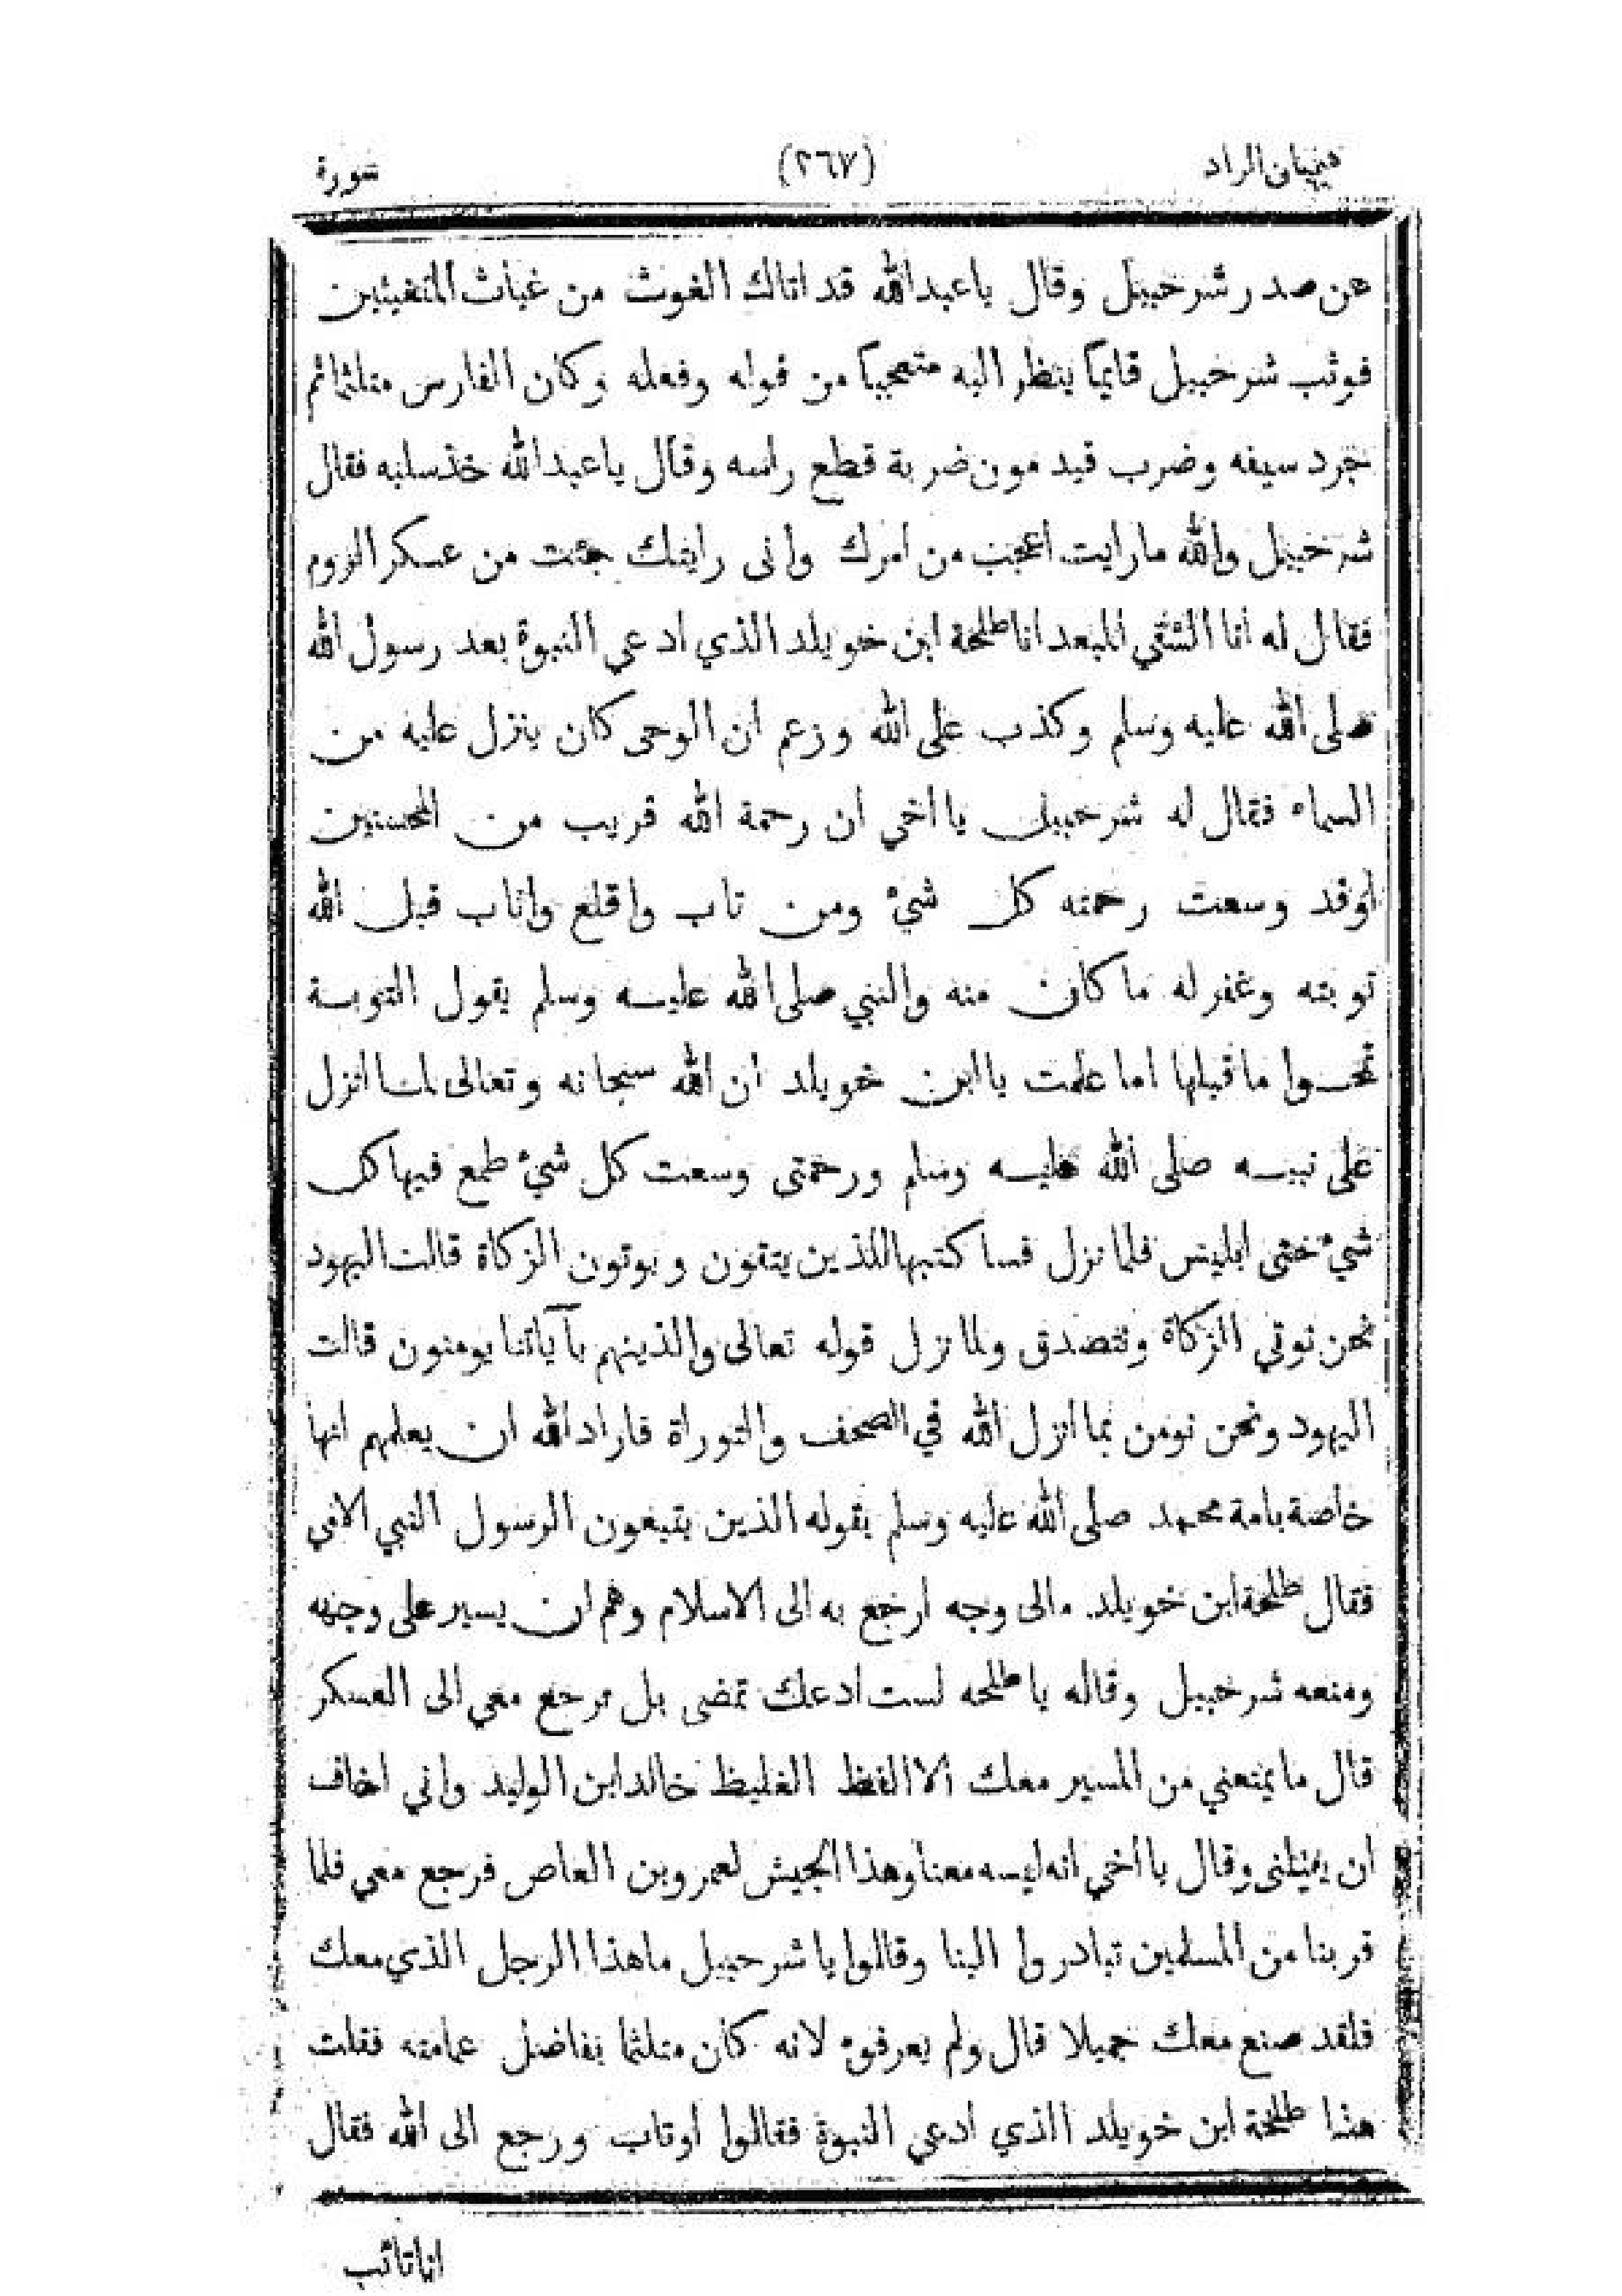 سورة (٢٦٧) الراد
عن صدر شرحبيل وقال ياعبدالله قد اتاك الغوث من غياث المتغيثين
فوثب شرحبيل قايمًا ينظر اليه متعجبا من قوله وفعله وكان الفارس متلثما ثم
جرد سيفه وضرب قيد مون ضربة قطع راسه وقال ياعبدالله خذ سلبه فقال
شرحبيل والله مارايت اعجب من امرك وانى رايتك جئت من عسكر الروم
فقال له انا الشقي المبعد انا طلحة ابن خويلد الذي ادعى النبوة بعد رسول الله
صلى الله عليه وسلم وكذب على الله وزعم ان الوحى كان ينزل عليه من
السماء فقال له شرحبيل يا اخي ان رحمة الله قريب من المحسنين
اوقد وسعت رحمته كل شيْ ومن تاب واقلع واناب قبل الله
توبته وغفر له ما كان منه والنبي صلى الله عليه وسلم يقول التوبة
تمحوا ما قبلها اما علمت يا ابن خويلد ان الله سبحانه وتعالى لما انزل
على نبيه صلى الله عليه وسلم ورحمتى وسعت كل شيْ طمع فيها كل
شيْ حتى ابليس فلما نزل فساكتبها للذين يتقون ويوتون الزكاة قالت اليهود
نحن نوتي الزكاة ونتصدق ولما نزل قوله تعالى والذينهم بآياتنا يومنون قالت
اليهود ونحن نومن بما انزل الله في الصحف والتوراة فاراد الله ان يعلمهم انها
خاصة بامة محمد صلى الله عليه وسلم بقوله الذين يتبعون الرسول النبي الامي
فقال طلحة ابن خويلد مالى وجه ارجع به الى الاسلام وهم ان يسير على وجهه
ومنعه شرحبيل وقاله يا طلحه لست ادعك تمضى بل ترجع معي الى العسكر
قال مايمنعني من المسير معك الا الفظ الغليظ خالد ابن الوليد واني اخاف
ان يقتلنى وقال يا اخي انه ليسه معنا وهذا الجيش لعمرو بن العاص فرجع معي فلما
قربنا من المسلمين تبادروا الينا وقالوا يا شرحبيل ما هذا الرجل الذي معك
فلقد صنع معك جميلا قال ولم يعرفوه لانه كان متلثما بفاضل عمامته فقلت
هذا طلحة ابن خويلد الذي ادعي النبوة فقالوا اوتاب ورجع الى الله فقال
انا تائب